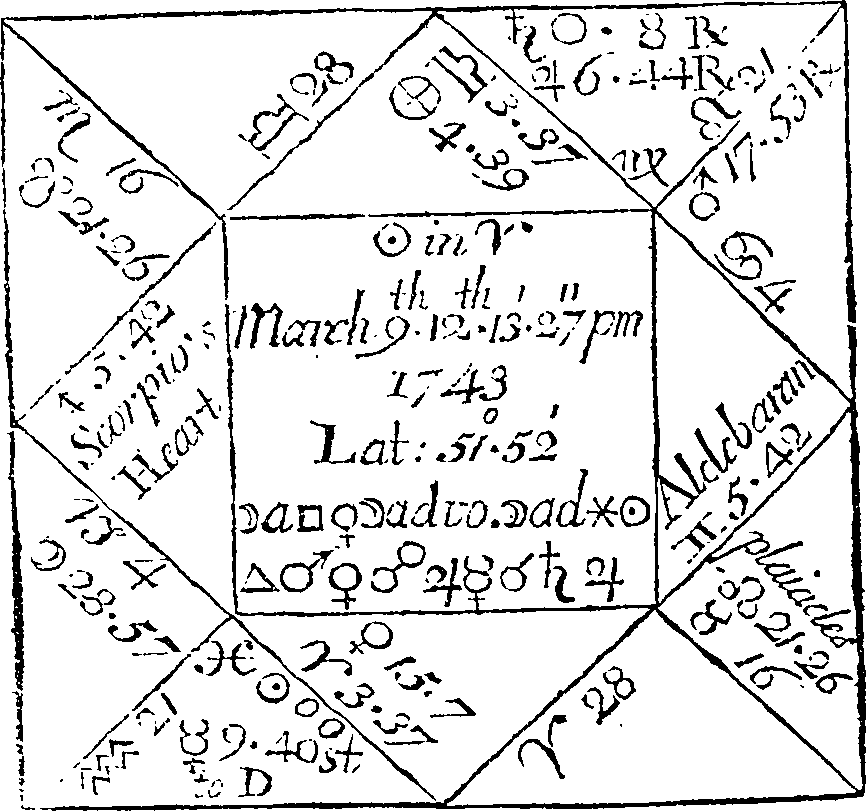 ☉ in ♈
March 9th · 12th · 13′ · 27″ pm
1743
Lat: 51°·52′
☽ a □ ♀ ☽ ad vo. ☽ ad ✶ ☉
△ ♂ ♀ ☍ ♃ ☿ ☌ ♄ ♃
♎ 28
♏ 16
☋ 21·26
♐ 5·42
Scorpio's
Heart
♑ 4
☽ 28·57
♒ 21
♓
☉ 00
☿ 9·40 st.
D
♀ 15·7
♓ 3·37
♈ 28
plaiades
☊ 21·26
♉ 16
Aldebaran
♊ 5·42
♋ 4
♂ 17·53 ℞
♌ 21
♄ 0·8 ℞
♃ 6·44 ℞
♍
♍ 3·37
⊗ 4·39